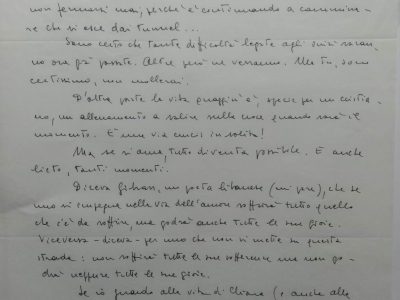 non fermarsi mai, perché è continuando a cammina-
re che si esce dai tunnel...
Sono certo che tante difficoltà legate agli inizi saran-
no ora già passate. Altre però ne verranno. Ma tu, sono
certissimo, non mollerai.
D'altra parte la vita quaggiù è, specie per un cristia-
no, un allenamento a salire sulla croce quando sarà il
momento. E una via crucis in salita!
Ma se si ama, tutto diventa possibile. E anche
lieto, tanti momenti.
Diceva Gibran, un poeta libanese (mi pare), che se
uno si impegna nella via dell'amore soffrirà tutto quello
che c'è da soffrire, ma godrà anche tutte le sue gioie.
Viceversa - diceva - per uno che non si mette su questa
strada: non soffrirà tutte le sue sofferenze ma non go-
drà neppure tutte le sue gioie.
Se io guardo alla vita di Chiara (e anche alla